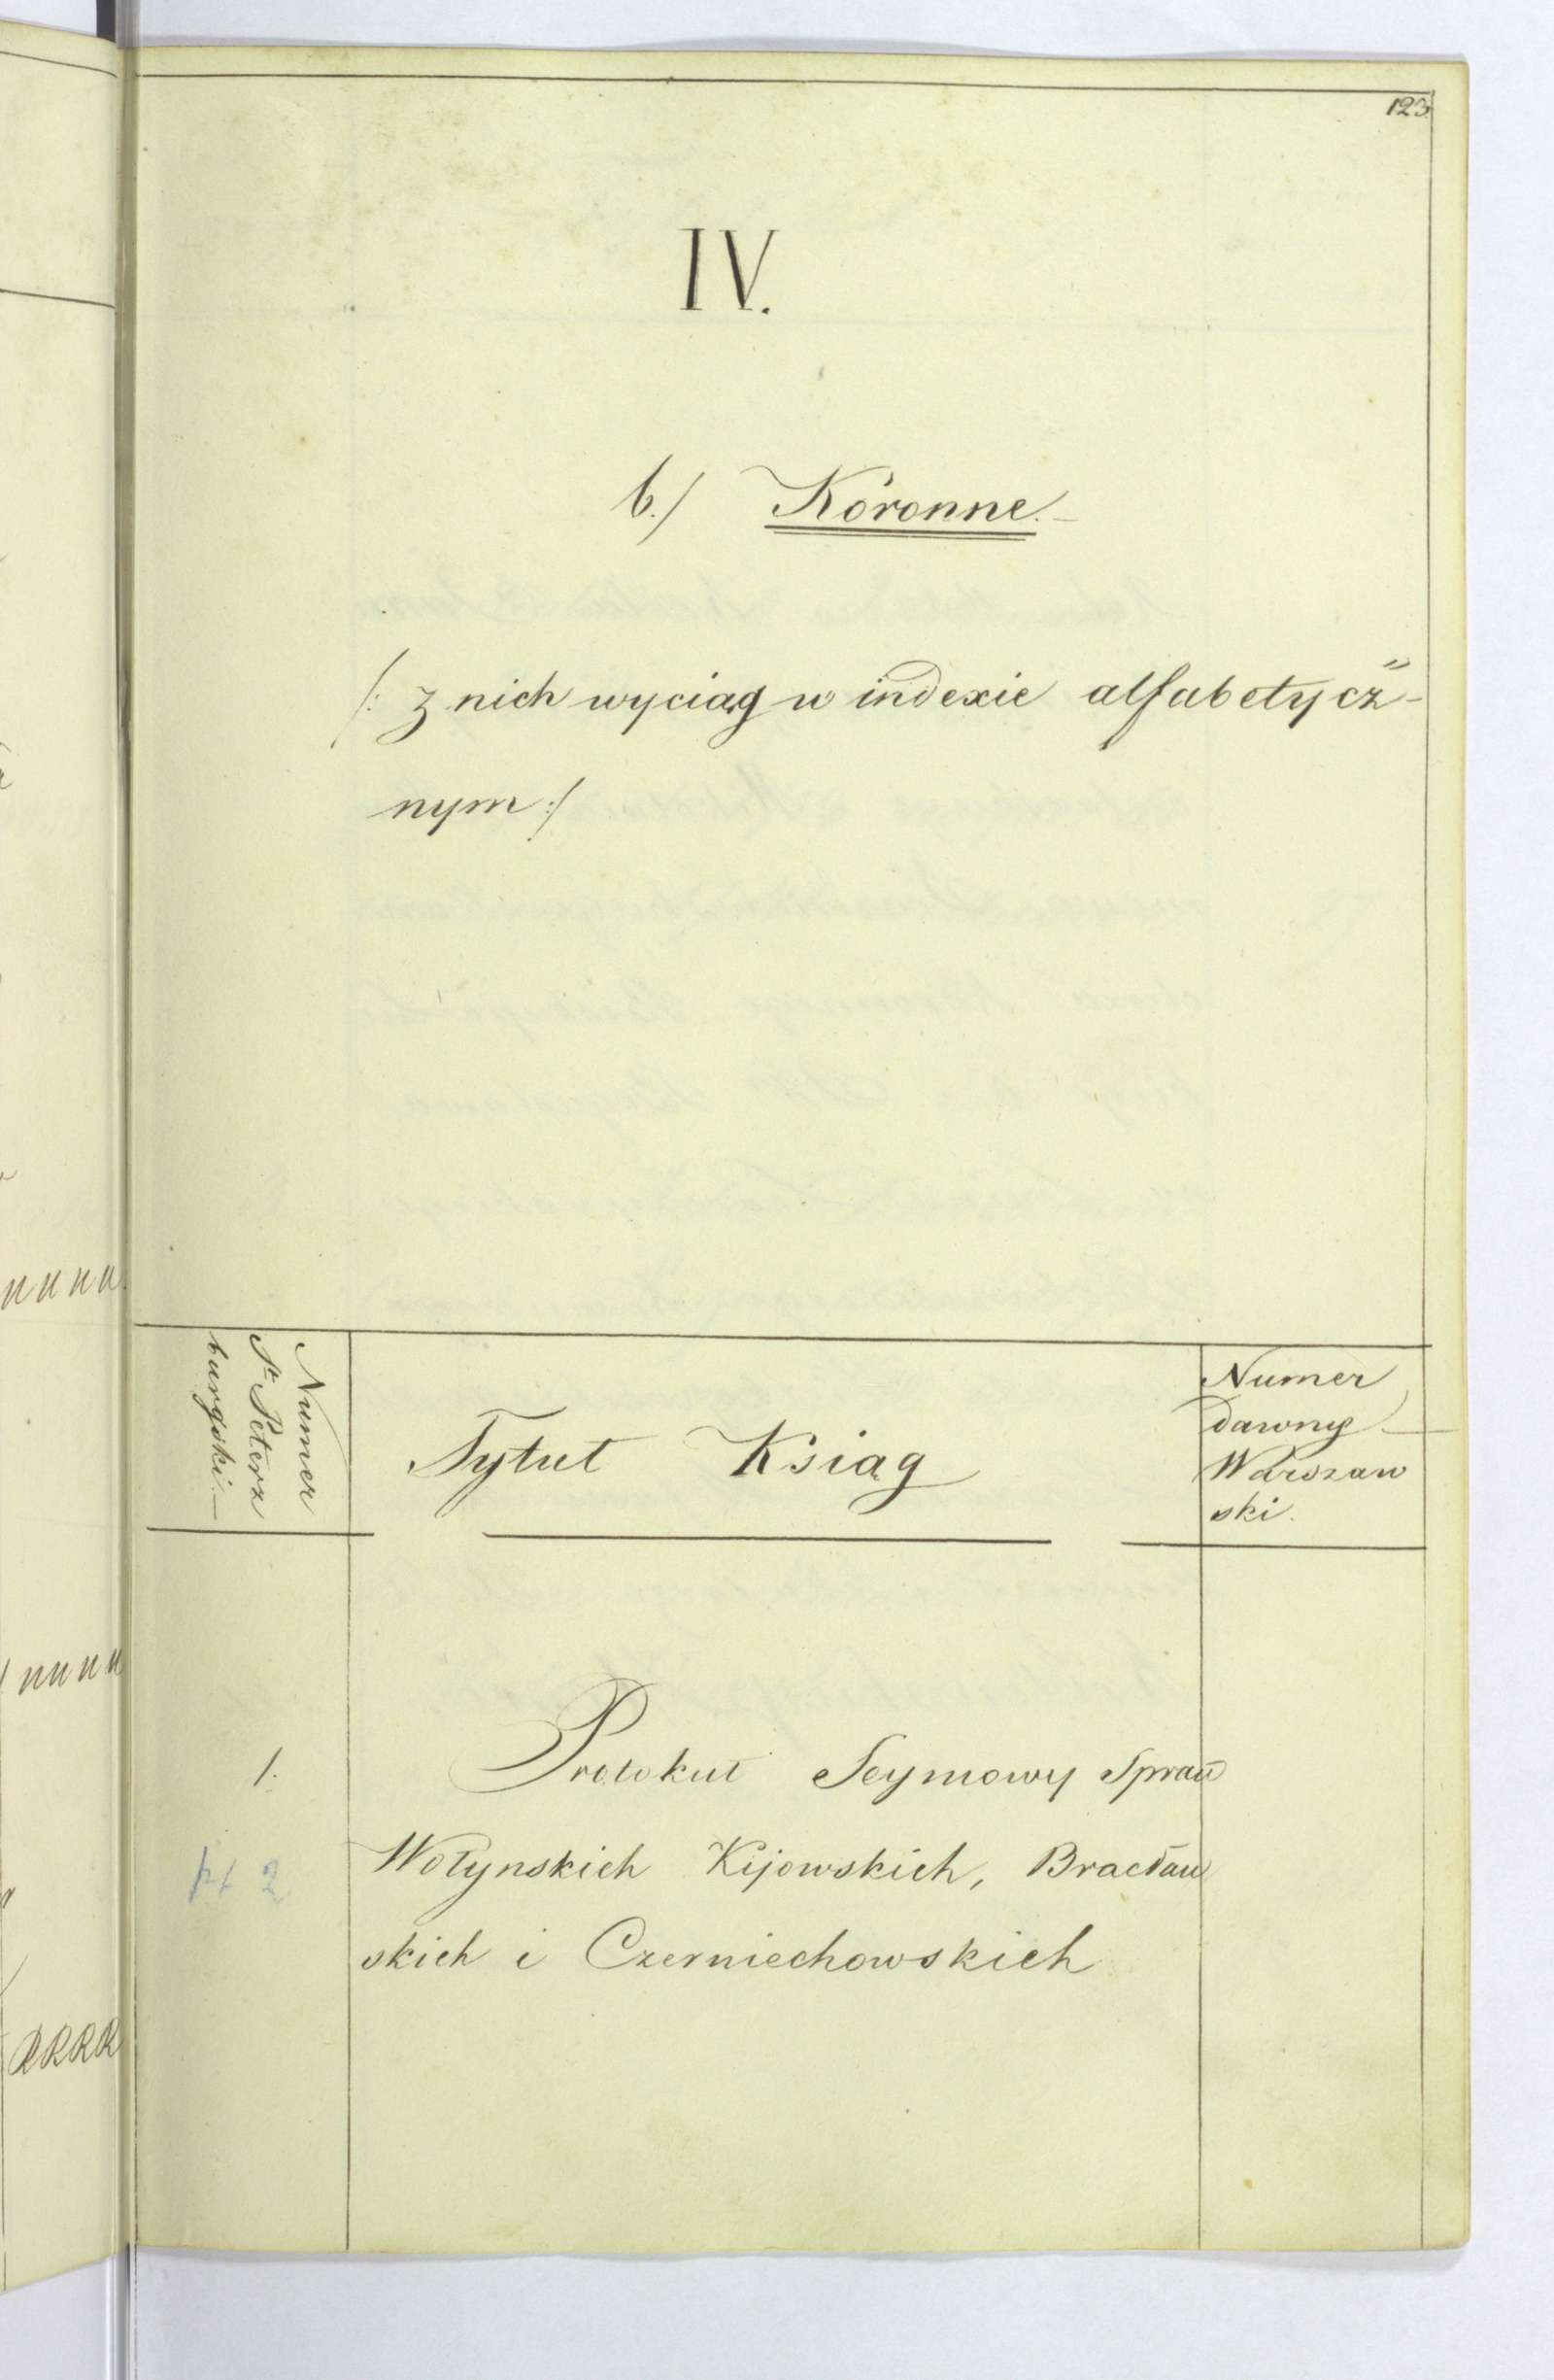 123
IV.
b./ Koronne.–
/: z nich wyciąg w indexie alfabetycz-
nym :/
Numer
St. Petersz
burgski.–
Tytuł Ksiąg
Numer
dawny
Warszaw
ski.
1. Protokuł Seymowy Spraw
Wołynskich Kijowskich, Bracław
skich i Czerniechowskich